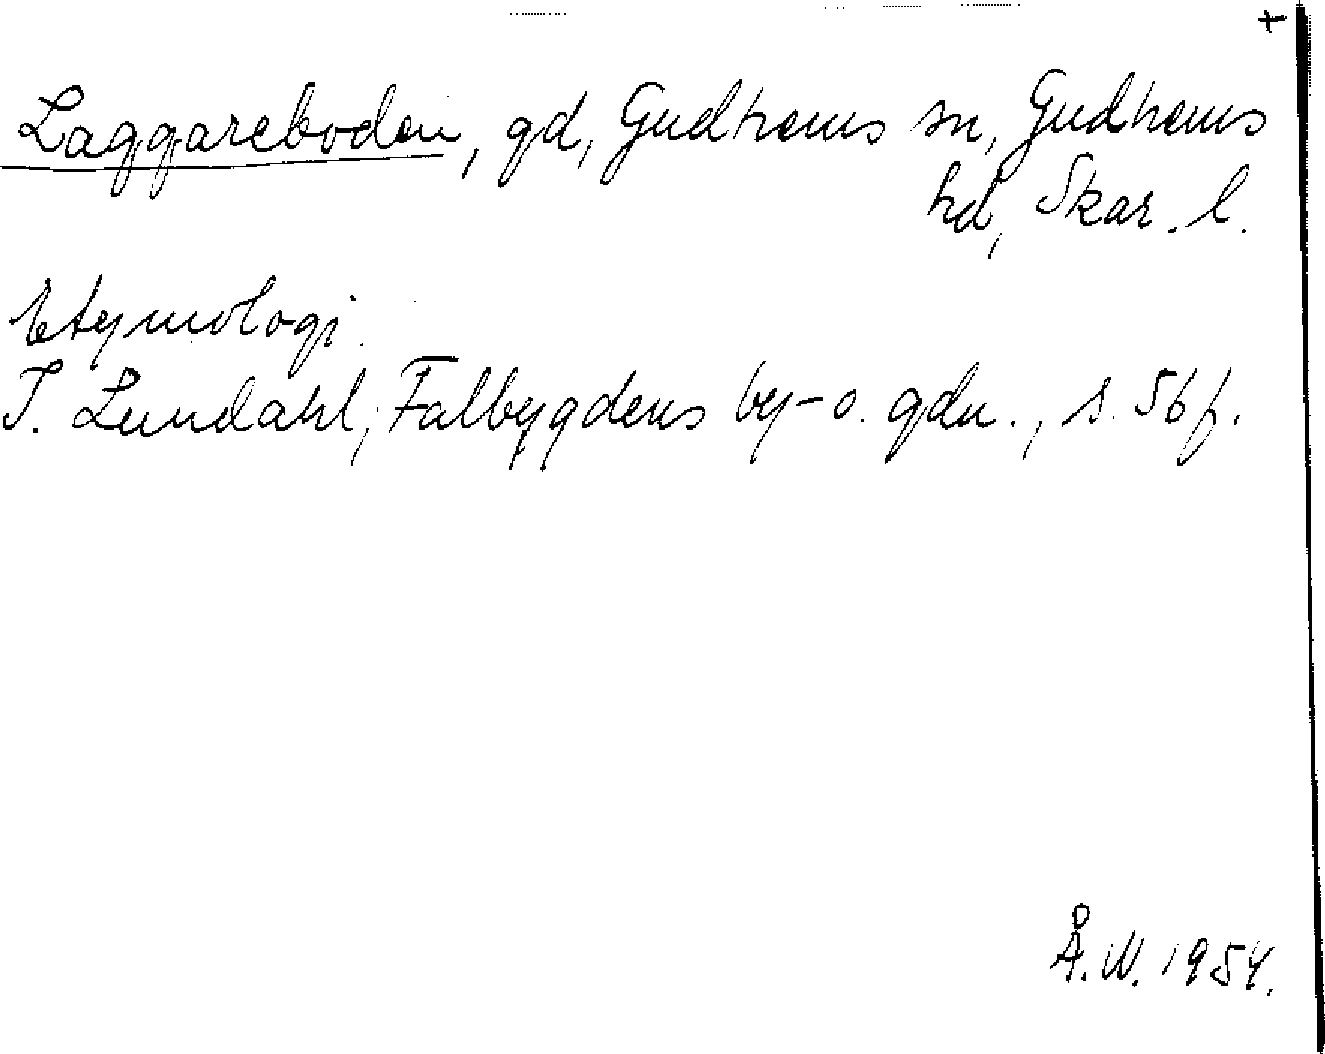 Laggareboden, gd, Gudhems sn, Gudhems
hd, Skar. l.
Etymologi.
I. Lundahl, Falbygdens by- o. gdn., s. 56 f.
Å.W. 1954.